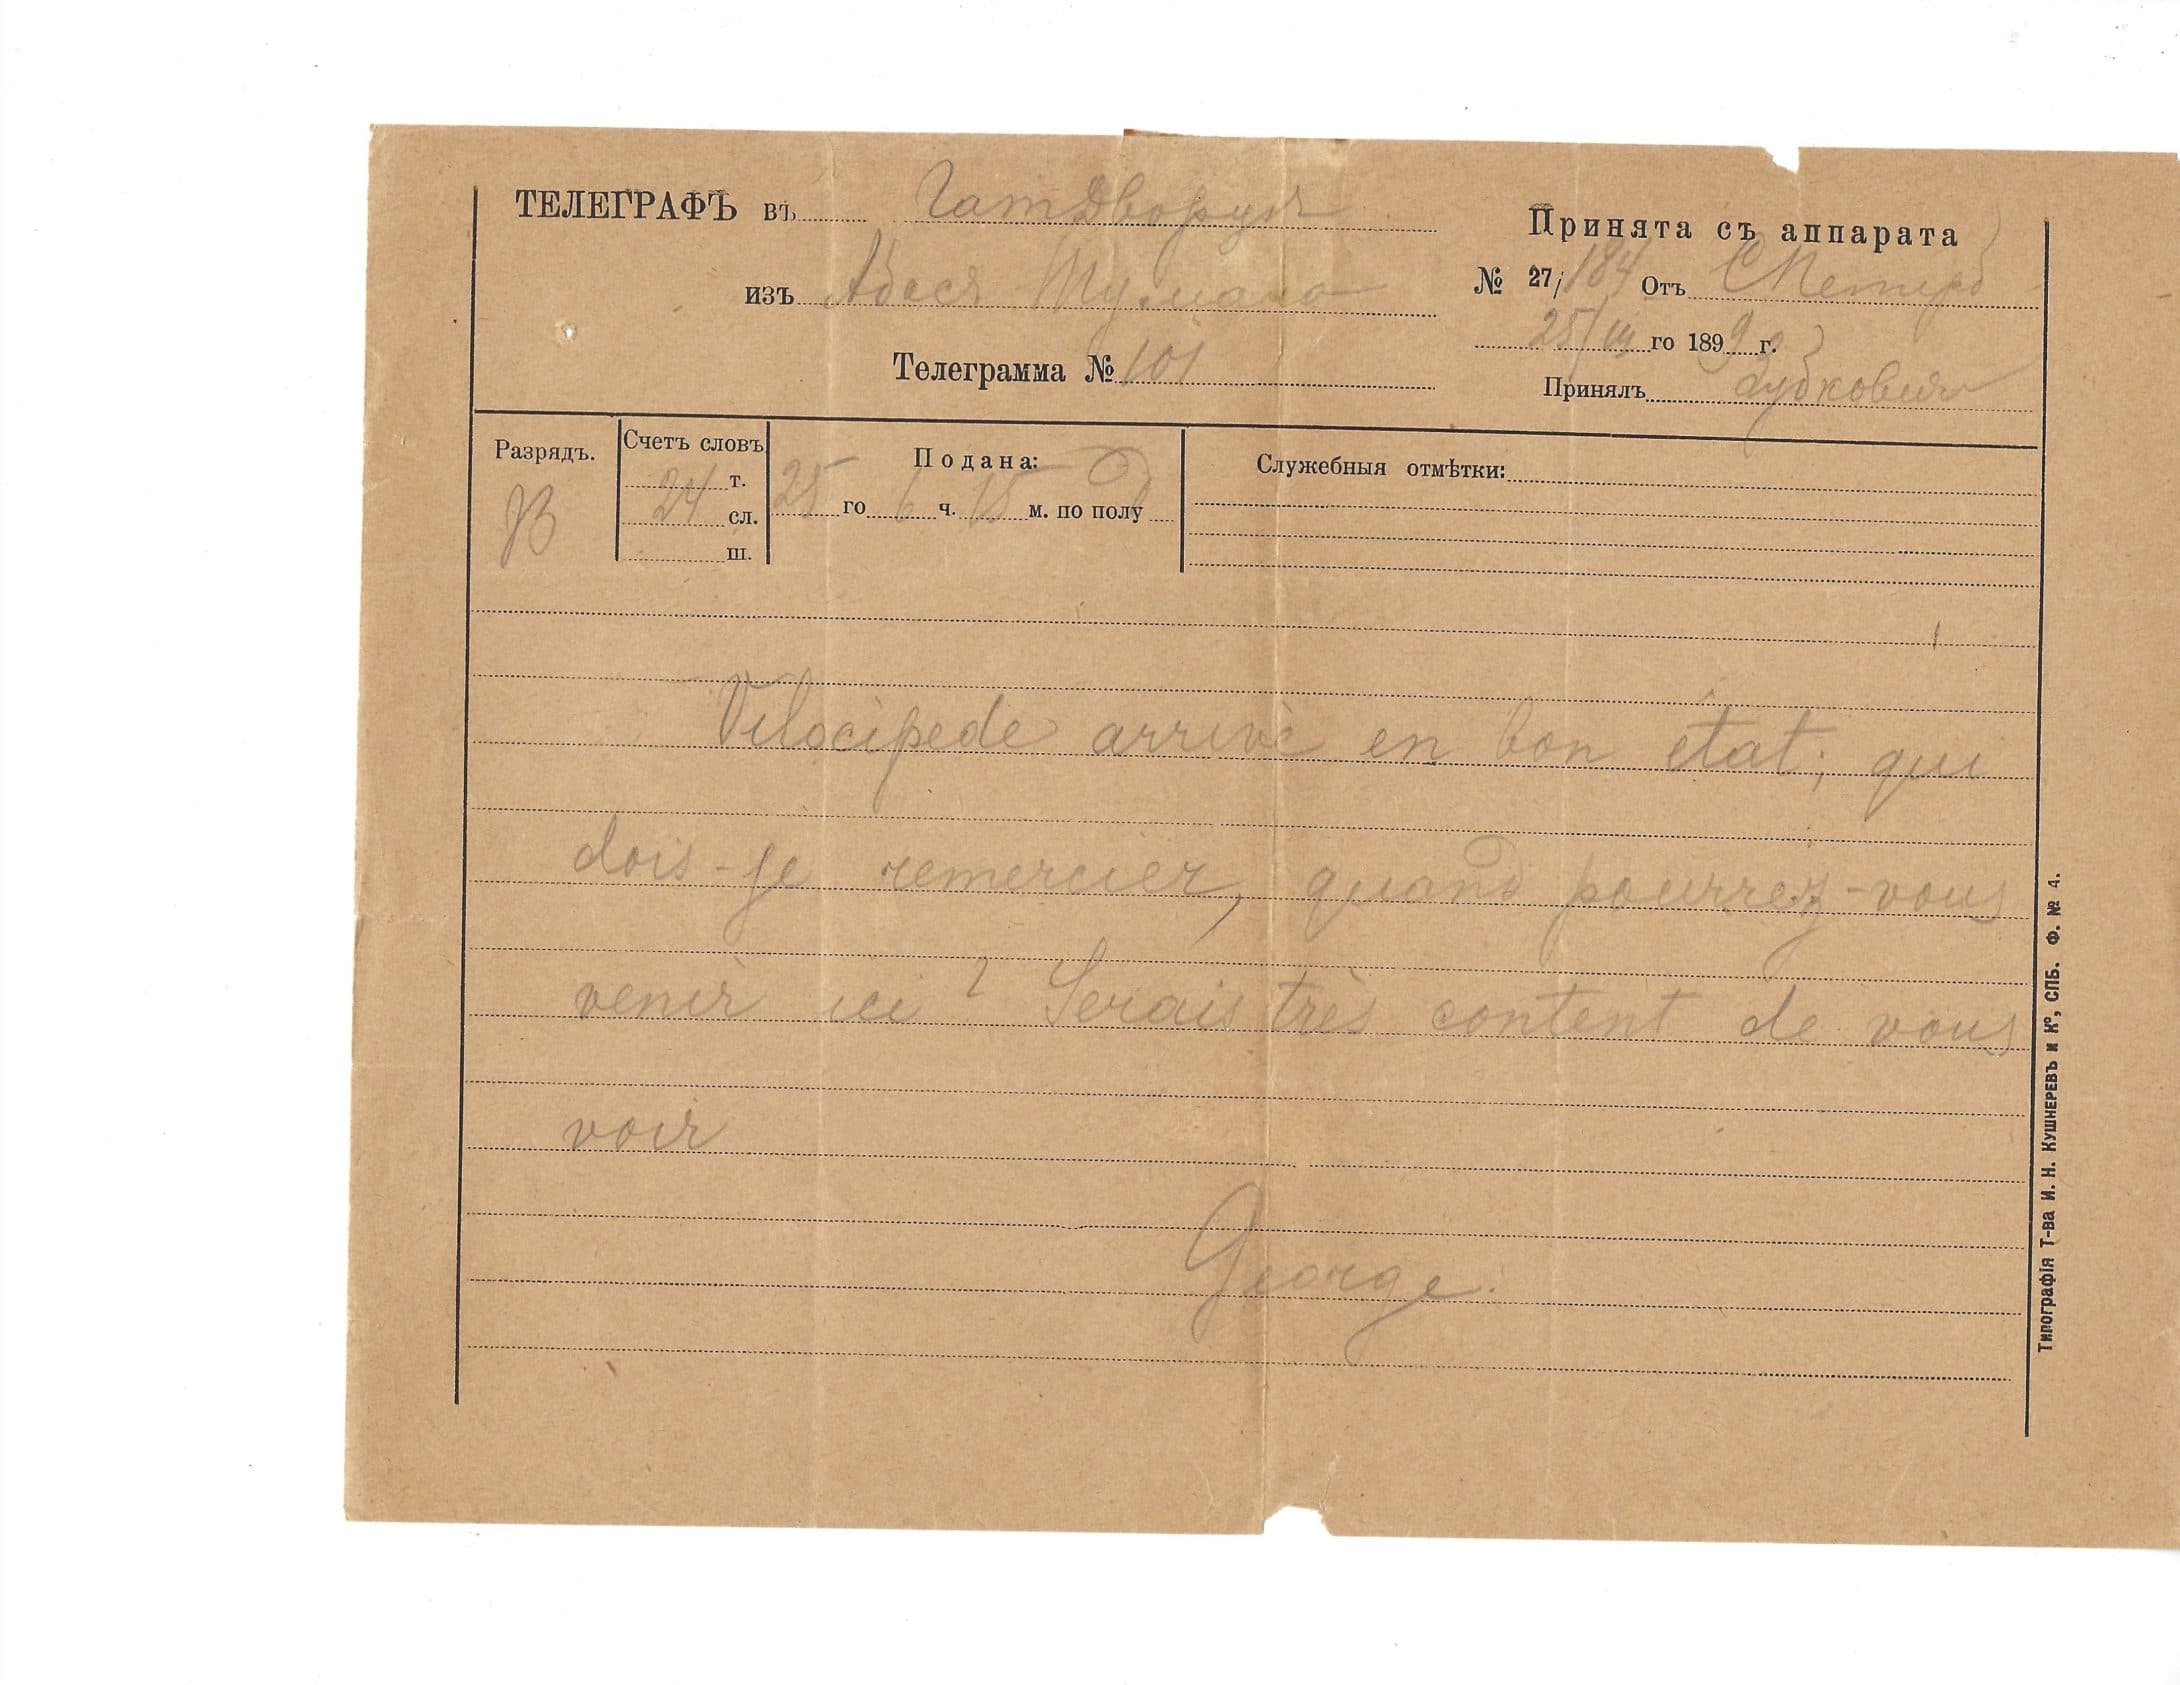 ТЕЛЕГРАФЪ въ Гатдворца
изъ Абасъ Тумана
Телеграмма № 101
Принята съ аппарата
№ 27/184 Отъ СПетерб
25/III го 1899 г.
Принялъ
Разрядъ.
Счетъ словъ
т.
24 сл.
ш.
Подана:
25 го 6 ч. 15 м. по полу д
Служебныя отмѣтки:
Vélocipède arrivé en bon état; qui
dois-je remercier, quand pourrez-vous
venir ici? Serais très content de vous
voir
George.
Типографія Т-ва И. Н. Кушнеревъ и К°, СПБ. Ф. № 4.